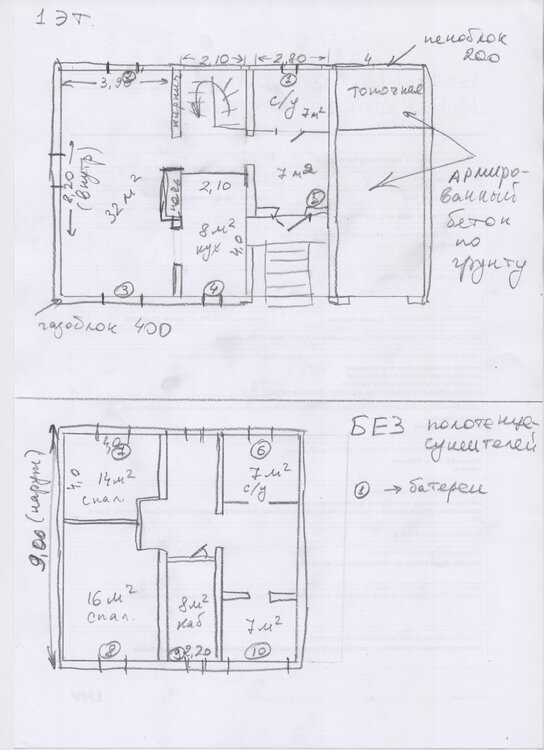 1 ЭТ.
2,10
2,80
4
пеноблок
200
3,90
②
①
с/у
7м²
топочная
кирпич
8,20
(внутр)
32 м²
2,10
7м2
⑤
8м²
кух
4,0
③
④
армиро-
ванный
бетон
по
грунту
газоблок 400
БЕЗ полотенце-
сушителей
① → батареи
4,0
⑦
4,0
14м²
спал.
⑥
7м²
с/у
9,00 (наруж)
16м²
спал.
8м²
каб
7м²
⑧
⑨
2,20
⑩